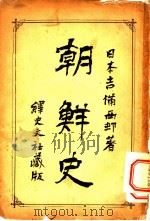 日本吉備西邨著
朝鮮史
譯史文社藏版